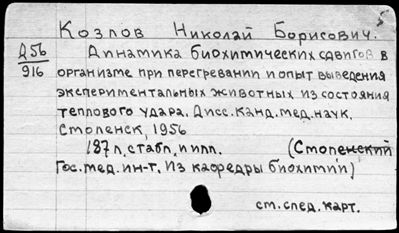 Козлов Николай Борисович.
Д56
916
Динамика биохимических сдвигов в
организме при перегревании и опыт выведения
экспериментальных животных из состояния
теплового удара. Дисс. канд. мед. наук.
Смоленск, 1956
187 л. с табл. и илл. (Смоленский
Гос. мед. ин-т. Из кафедры биохимии)
см. спед. карт.